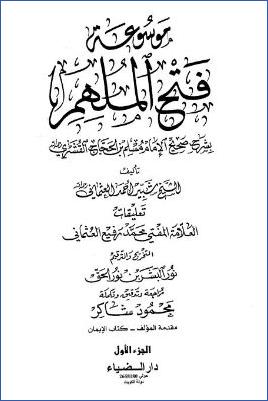 موسوعة
فتح الملهم
بشرح صحيح الإمام مسلم بن الحجاج القشيري
تأليف
الشيخ شبير أحمد العثماني
تعليقات
العلامة المفتي محمد رفيع العثماني
التخريج والترقيم
نور البشر بن نور الحق
مراجعة وتدقيق وتكملة
محمود شاكر
مقدمة المؤلف - كتاب الإيمان
الجزء الأول
دار الضياء